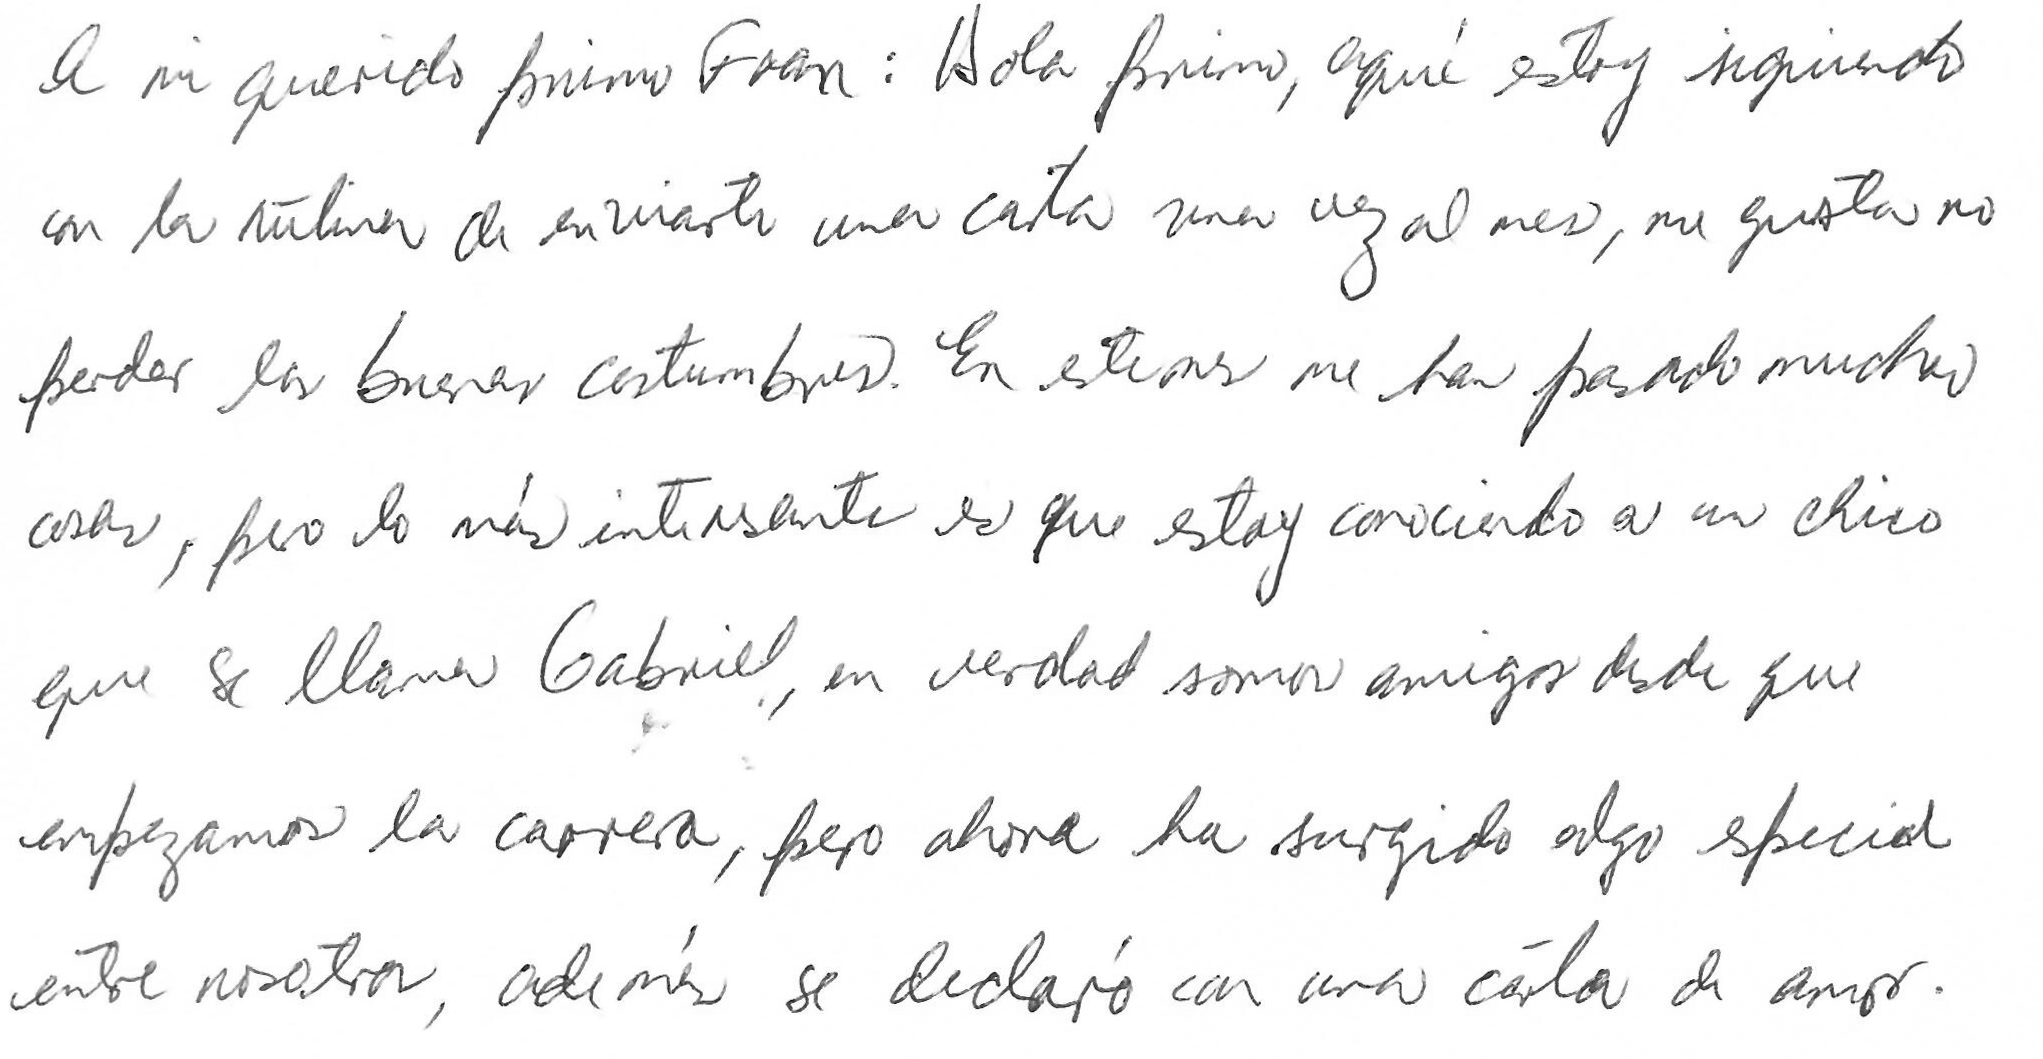 A mi querido primo Fran: Hola primo, aquí estoy siguiendo
con la rutina de enviarte una carta una vez al mes, me gusta no
perder las buenas costumbres. En este mes me han pasado muchas
cosas, pero lo más interesante es que estoy conociendo a un chico
que se llama Gabriel, en verdad somos amigos desde que
empezamos la carrera, pero ahora ha surgido algo especial
entre nosotros, además se declaró con una carta de amor.